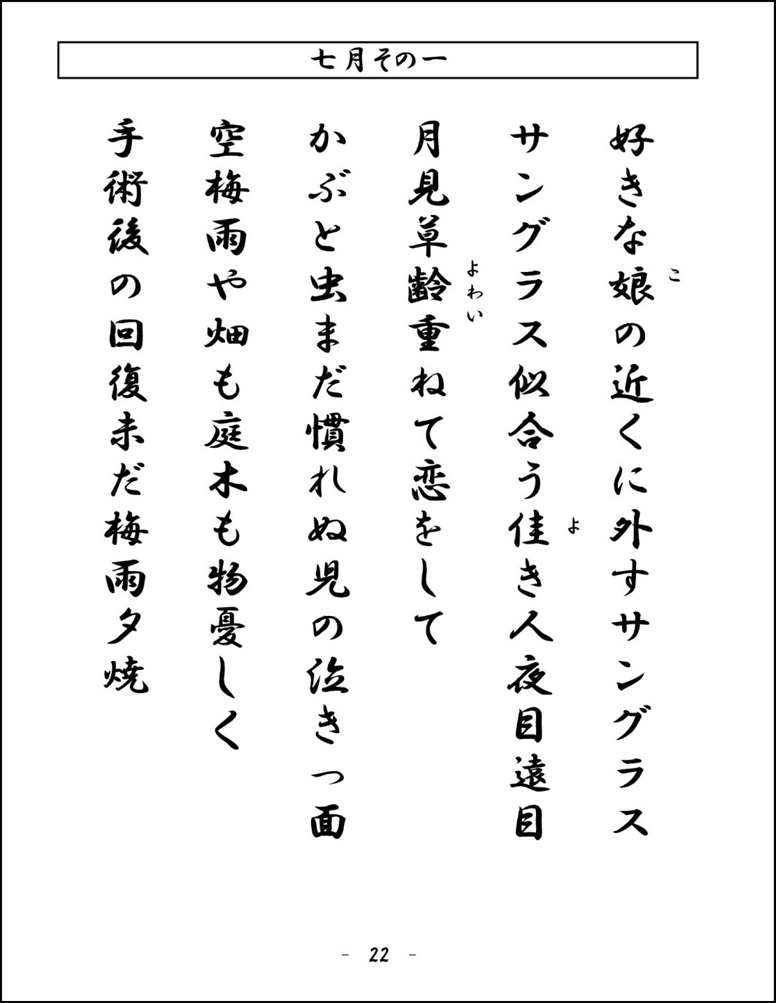 七月その一
好きな娘の近くに外すサングラス
こ
サングラス似合う佳き人夜目遠目
よ
月見草齢重ねて恋をして
よわい
かぶと虫まだ慣れぬ児の泣きっ面
空梅雨や畑も庭木も物憂しく
手術後の回復未だ梅雨夕焼
- 22 -